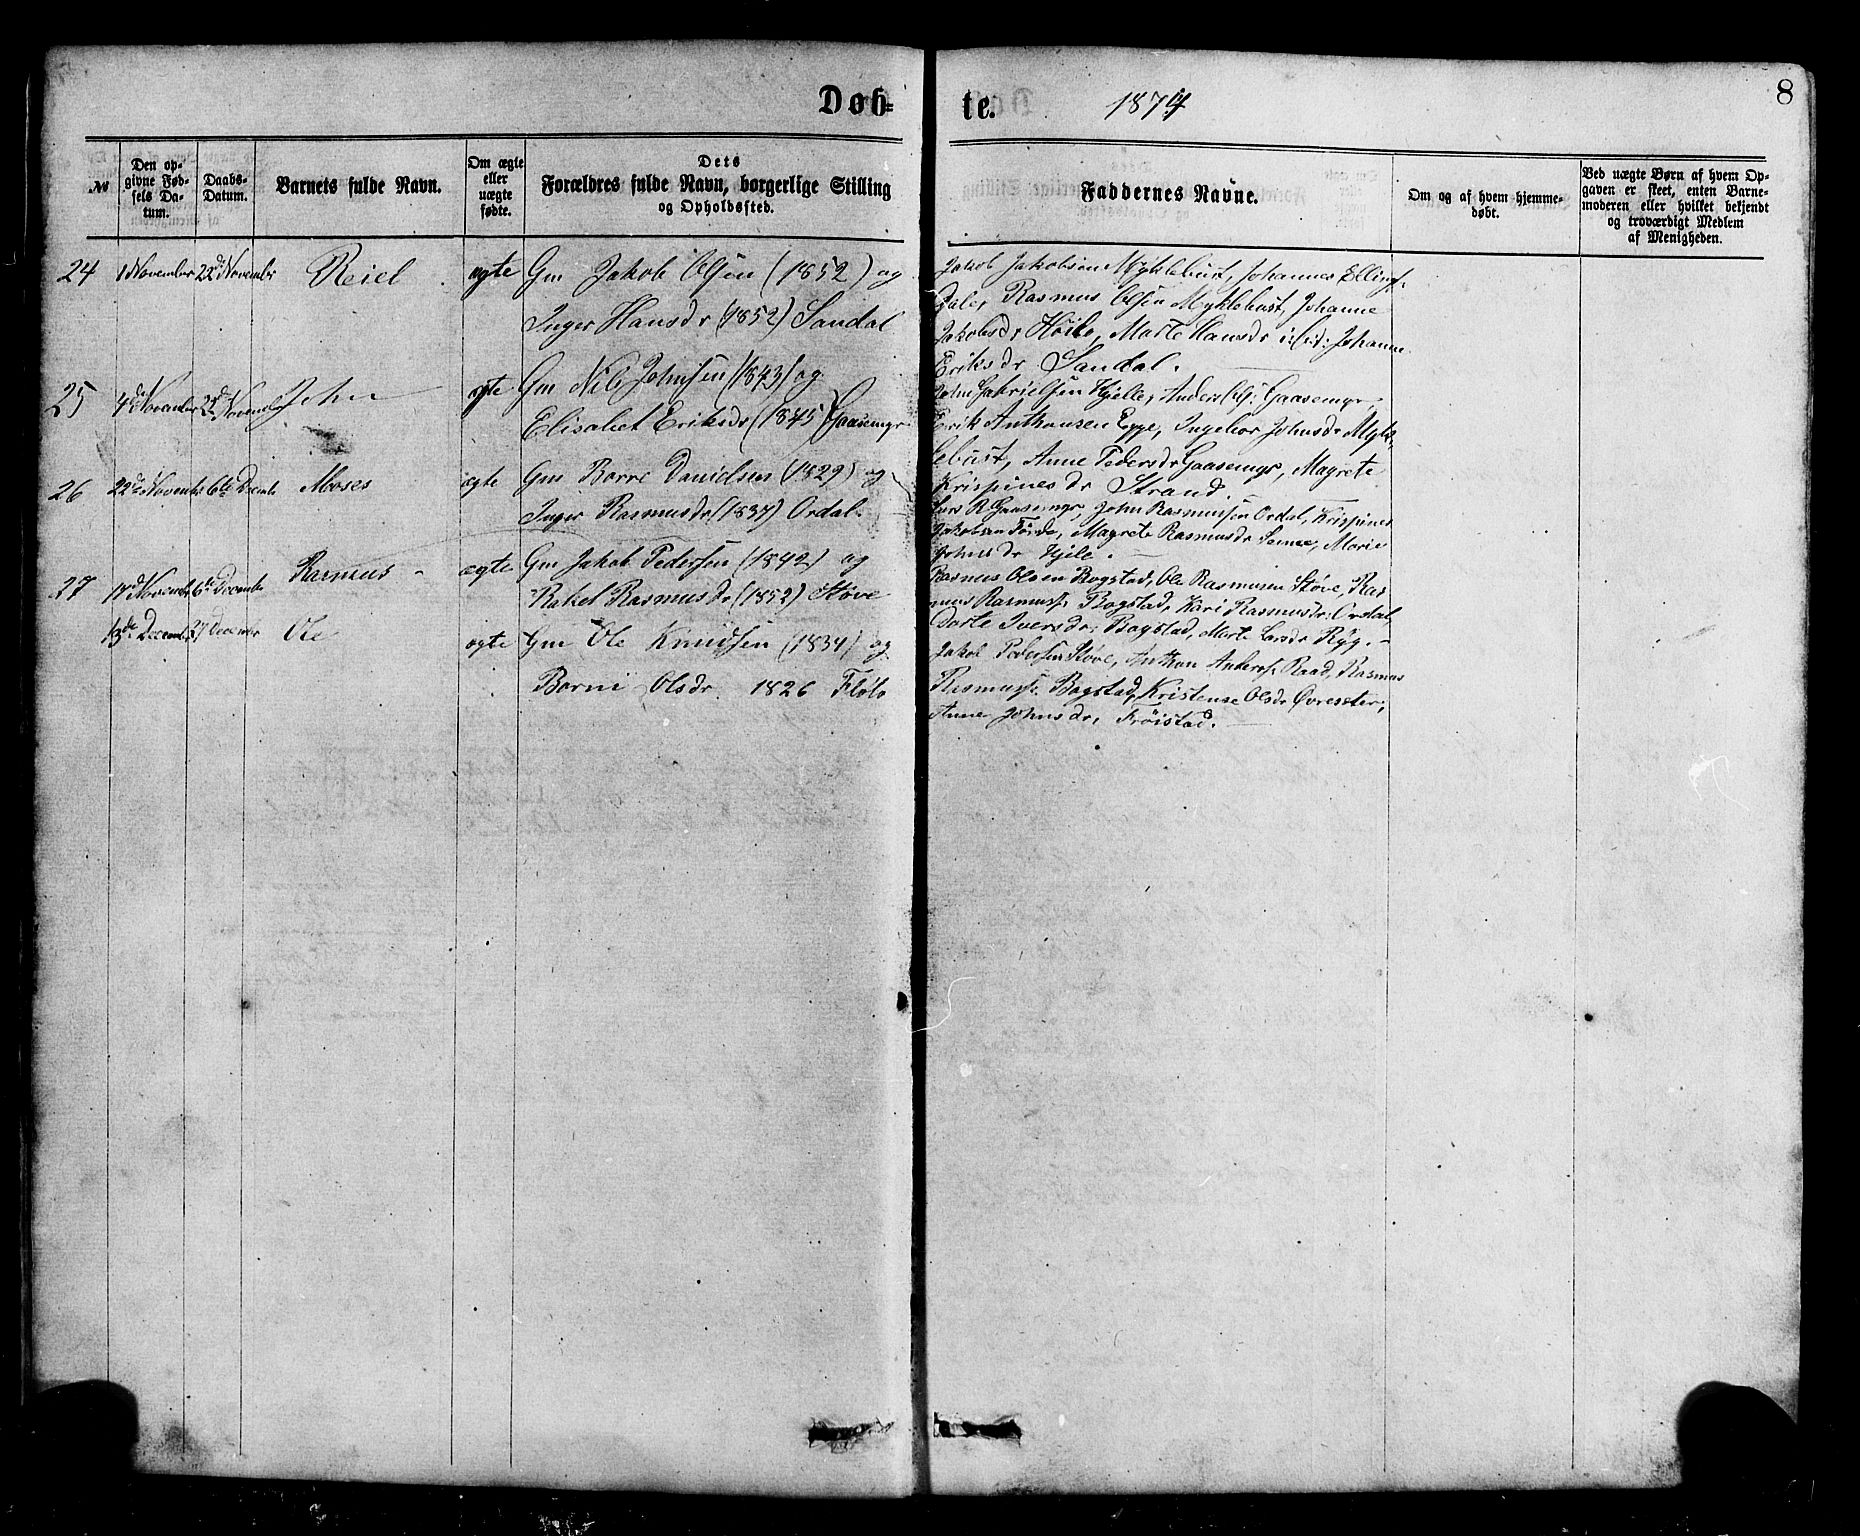 Døb=te. 1874
8
№
Den op-
givne Fød-
sels Da-
tum.
Daabs-
Datum.
Barnets fulde Navn.
Om ægte
eller
uægte
fødte.
Dets
Forældres fulde Navn, borgerlige Stilling
og Opholdssted.
Faddernes Navne.
Om og af hvem hjemme-
døbt.
Ved uægte Børn af hvem Op-
gaven er skeet, enten Barne-
moderen eller hvilket bekjendt
og troværdigt Medlem
af Menigheden.
24 1 November 22d November Reiel ægte Gm Jakob Olsen (1852) og
Inger Hansdr (1852) Sandal
Jakob Jakobsen Myklebust, Johannes Elling
Dale, Rasmus Olsen Myklebust, Johanne
Jakobsdr Høilo, Marte Hansdr Johanne
Eriksdr Sandal.
25 4de November 22d November John ægte Gm Nils Johnsen (1843) og
Elisabet Eriksdr (1845) Gaasemyr
John Gabrielsen Hjelle, Anders Ols: Gaasemyr
Erik Anthonsen Egge, Ingebor Johnsdr Myk-
lebust, Anne Pedersdr Gaasemyr, Magrete
Krispinesdr Strand.
26 22de November 6te Decembr Moses ægte Gm Borre Danielsen (1829) og
Inger Rasmusdr (1837) Ordal.
Lars R Gaasemyr, John Rasmussen Ordal, Krispines
Jakobsen Førde, Magrete Rasmusdr Marie
Johnsdr Hjele.
27 November 6te December Rasmus - ægte Gm Jakob Pedersen (1842) og
Rakel Rasmusdr (1852) Støve
Rasmus Olsen Bogstad, Ole Rasmussen Støve, Ras
mus Rasmuss. Bogstad, Kari Rasmusdr. Ordal,
Dorte Iversdr; Bogstad, Marte Larsdr Ryg. -
13de December 27 December Ole ægte Gm Ole Knudsen (1834) og
Borni Olsdr. 1826 Flølo
Jakob Pedersen Støve, Anthon Anderss. Raad, Rasmus
Rasmuss. Bogstad, Kristense Olsdr
Anne Johnsdr, Frøistad.